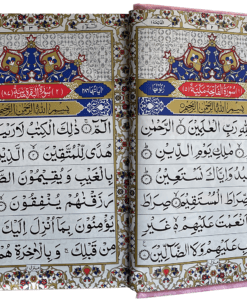 سُوْرَةُ الْفَاتِحَةِ مَكِّيَّةٌ
بِسْمِ اللهِ الرَّحْمٰنِ الرَّحِيْمِ
رَبِّ الْعَالَمِيْنَ ۝ الرَّحْمٰنِ
مٰلِكِ يَوْمِ الدِّيْنِ ۝
وَاِيَّاكَ نَسْتَعِيْنُ ۝
الْمُسْتَقِيْمَ ۝ صِرَاطَ
نْعَمْتَ عَلَيْهِمْ ۝ غَيْرِ
عَلَيْهِمْ وَلَا الضَّآلِّيْنَ ۝
بِسْمِ اللهِ الرَّحْمٰنِ الرَّحِيْمِ
الٓمّٓ ۝ ذٰلِكَ الْكِتٰبُ لَا رَيْبَ
هُدًى لِّلْمُتَّقِيْنَ ۝ الَّذِيْ
بِالْغَيْبِ وَيُقِيْمُوْنَ
رَزَقْنٰهُمْ يُنْفِقُوْنَ ۝
يُؤْمِنُوْنَ بِمَآ اُنْزِلَ اِلَيْ
مِنْ قَبْلِكَ ۚ وَبِالْاٰخِرَةِ هُمْ